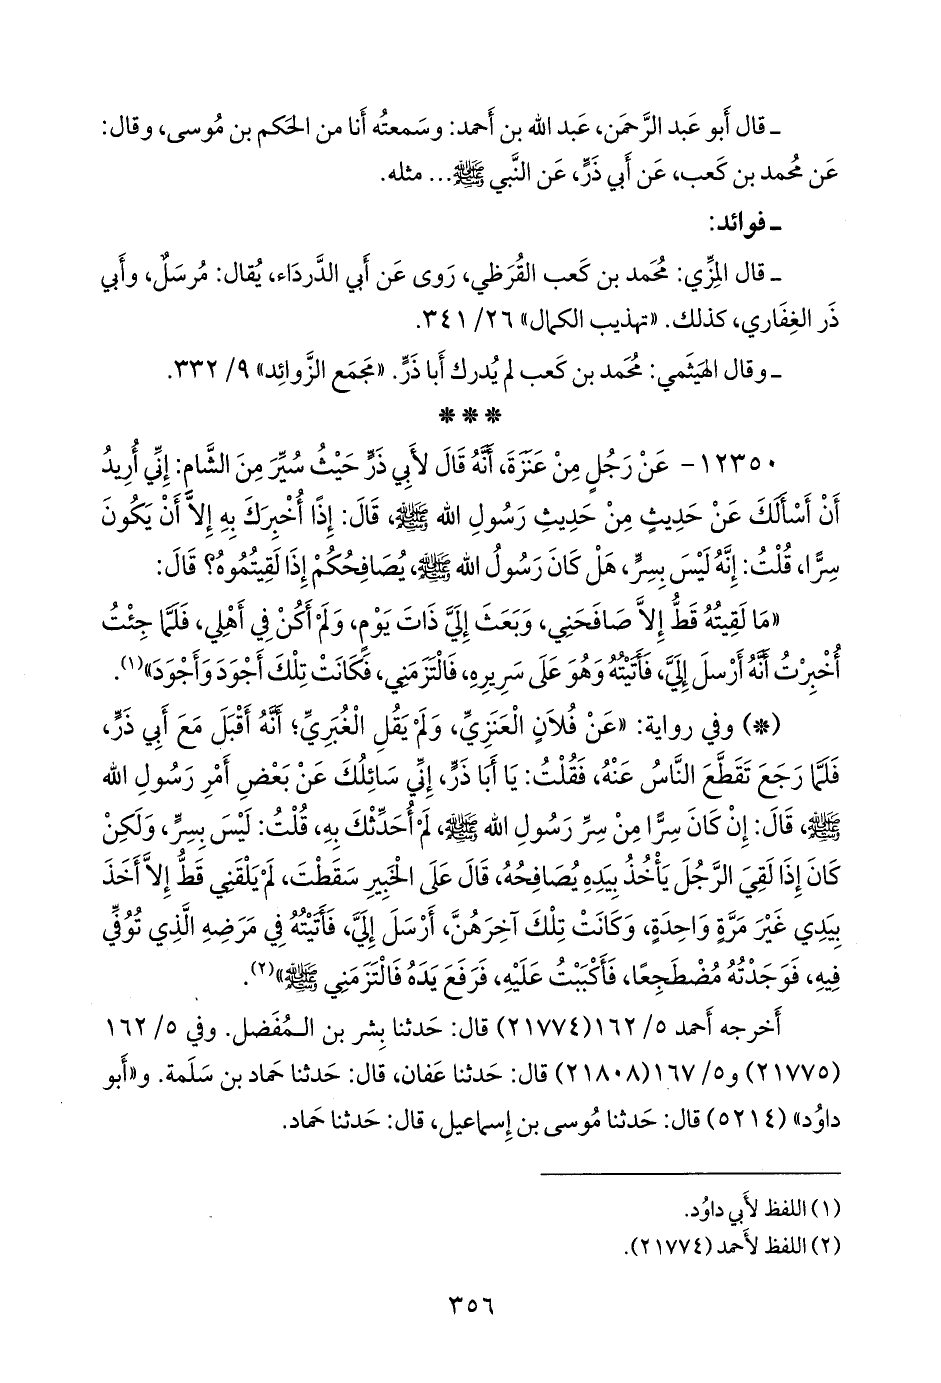 ـ قال أَبو عَبد الرَّحمَن، عَبد الله بن أَحمد: وسَمعتُه أَنا من الحَكم بن مُوسى، وقال:
عَن مُحمد بن كَعب، عَن أَبي ذَرٍّ، عَن النَّبي ﷺ... مثله.
ـ فوائد:
ـ قال المِزِّي: مُحَمد بن كَعب القُرَظي، رَوى عَن أَبي الدَّردَاء، يُقال: مُرسَلٌ، وأَبي
ذَر الغِفَاري، كذلك. «تهذيب الكمال» ٢٦/ ٣٤١.
ـ وقال الهَيثَمي: مُحَمد بن كَعب لم يُدرك أَبا ذَرٍّ. «مَجمَع الزَّوائِد» ٩/ ٣٣٢.
* * *
١٢٣٥٠- عَنْ رَجُلٍ مِنْ عَنَزَةَ، أَنَّهُ قَالَ لأَبِي ذَرٍّ حَيْثُ سُيِّرَ مِنَ الشَّامِ: إِنِّي أُرِيدُ
أَنْ أَسْأَلَكَ عَنْ حَدِيثٍ مِنْ حَدِيثِ رَسُولِ الله ﷺ، قَالَ: إِذًا أُخْبِرَكَ بِهِ إِلاَّ أَنْ يَكُونَ
سِرًّا، قُلْتُ: إِنَّهُ لَيْسَ بِسِرٍّ، هَلْ كَانَ رَسُولُ الله ﷺ، يُصَافِحُكُمْ إِذَا لَقِيتُمُوهُ؟ قَالَ:
«مَا لَقِيتُهُ قَطُّ إِلاَّ صَافَحَنِي، وَبَعَثَ إِلَيَّ ذَاتَ يَوْمٍ، وَلَمْ أَكُنْ فِي أَهْلِي، فَلَمَّا جِئْتُ
أُخْبِرْتُ أَنَّهُ أَرْسلَ إِلَيَّ، فَأَتَيْتُهُ وَهُوَ عَلَى سَرِيرِهِ، فَالْتَزَمَنِي، فَكَانَتْ تِلْكَ أَجْوَدَ وَأَجْوَدَ»(١).
(*) وفي رواية: «عَنْ فُلاَنٍ الْعَنَزِيِّ، وَلَمْ يَقُلِ الْغُبَرِيِّ؛ أَنَّهُ أَقْبَلَ مَعَ أَبِي ذَرٍّ،
فَلَمَّا رَجَعَ تَقَطَّعَ النَّاسُ عَنْهُ، فَقُلْتُ: يَا أَبَا ذَرٍّ، إِنِّي سَائِلُكَ عَنْ بَعْضِ أَمْرِ رَسُولِ الله
ﷺ، قَالَ: إِنْ كَانَ سِرًّا مِنْ سِرِّ رَسُولِ الله ﷺ، لَمْ أُحَدِّثْكَ بِهِ، قُلْتُ: لَيْسَ بِسِرٍّ، وَلَكِنْ
كَانَ إِذَا لَقِيَ الرَّجُلَ يَأْخُذُ بِيَدِهِ يُصَافِحُهُ، قَالَ عَلَى الْخَبِيرِ سَقَطْتَ، لَمْ يَلْقَنِي قَطُّ إِلاَّ أَخَذَ
بِيَدِي غَيْرَ مَرَّةٍ وَاحِدَةٍ، وَكَانَتْ تِلْكَ آخِرَهُنَّ، أَرْسَلَ إِلَيَّ، فَأَتَيْتُهُ فِي مَرَضِهِ الَّذِي تُوُفِّيَ
فِيهِ، فَوَجَدْتُهُ مُضْطَجِعًا، فَأَكْبَبْتُ عَلَيْهِ، فَرَفَعَ يَدَهُ فَالْتَزَمَنِي ﷺ»(٢).
أَخرجه أَحمد ٥/ ١٦٢(٢١٧٧٤) قال: حَدثنا بِشر بن الـمُفَضل. وفي ٥/ ١٦٢
(٢١٧٧٥) و٥/ ١٦٧(٢١٨٠٨) قال: حَدثنا عَفان، قال: حَدثنا حَماد بن سَلَمة. و«أَبو
داوُد» (٥٢١٤) قال: حَدثنا مُوسى بن إِسماعيل، قال: حَدثنا حَماد.
(١) اللفظ لأَبي داوُد.
(٢) اللفظ لأَحمد (٢١٧٧٤).
٣٥٦